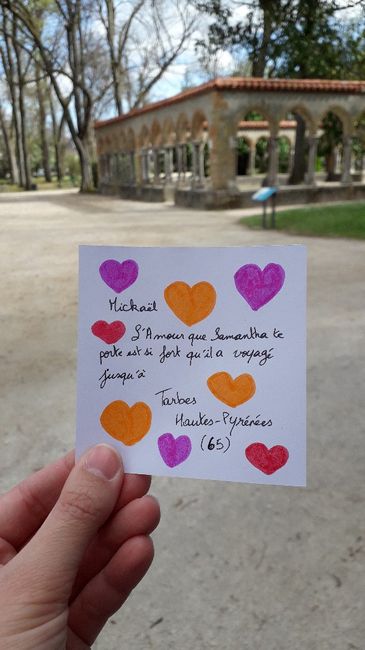 Mickaël
L'Amour que Samantha te
porte est si fort qu'il a voyagé
jusqu'à
Tarbes
Hautes-Pyrénées
(65)